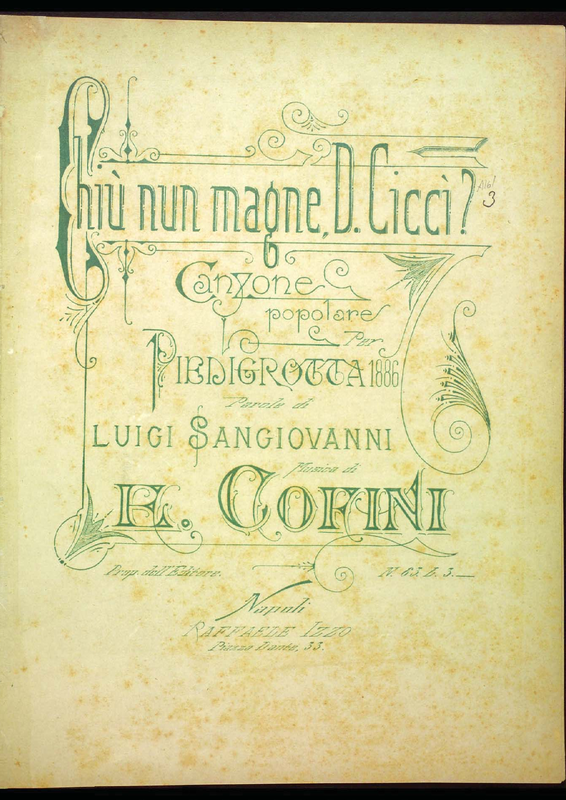 Chiù nun magne, D. Ciccì?
3
Canzone
popolare
Per
PIEDIGROTTA 1886
Parole di
LUIGI SANGIOVANNI
Musica di
COFINI
Prop. dell'Editore.
N. 65. L. 3.
Napoli
RAFFAELE IZZO
Piazza Dante, 33.